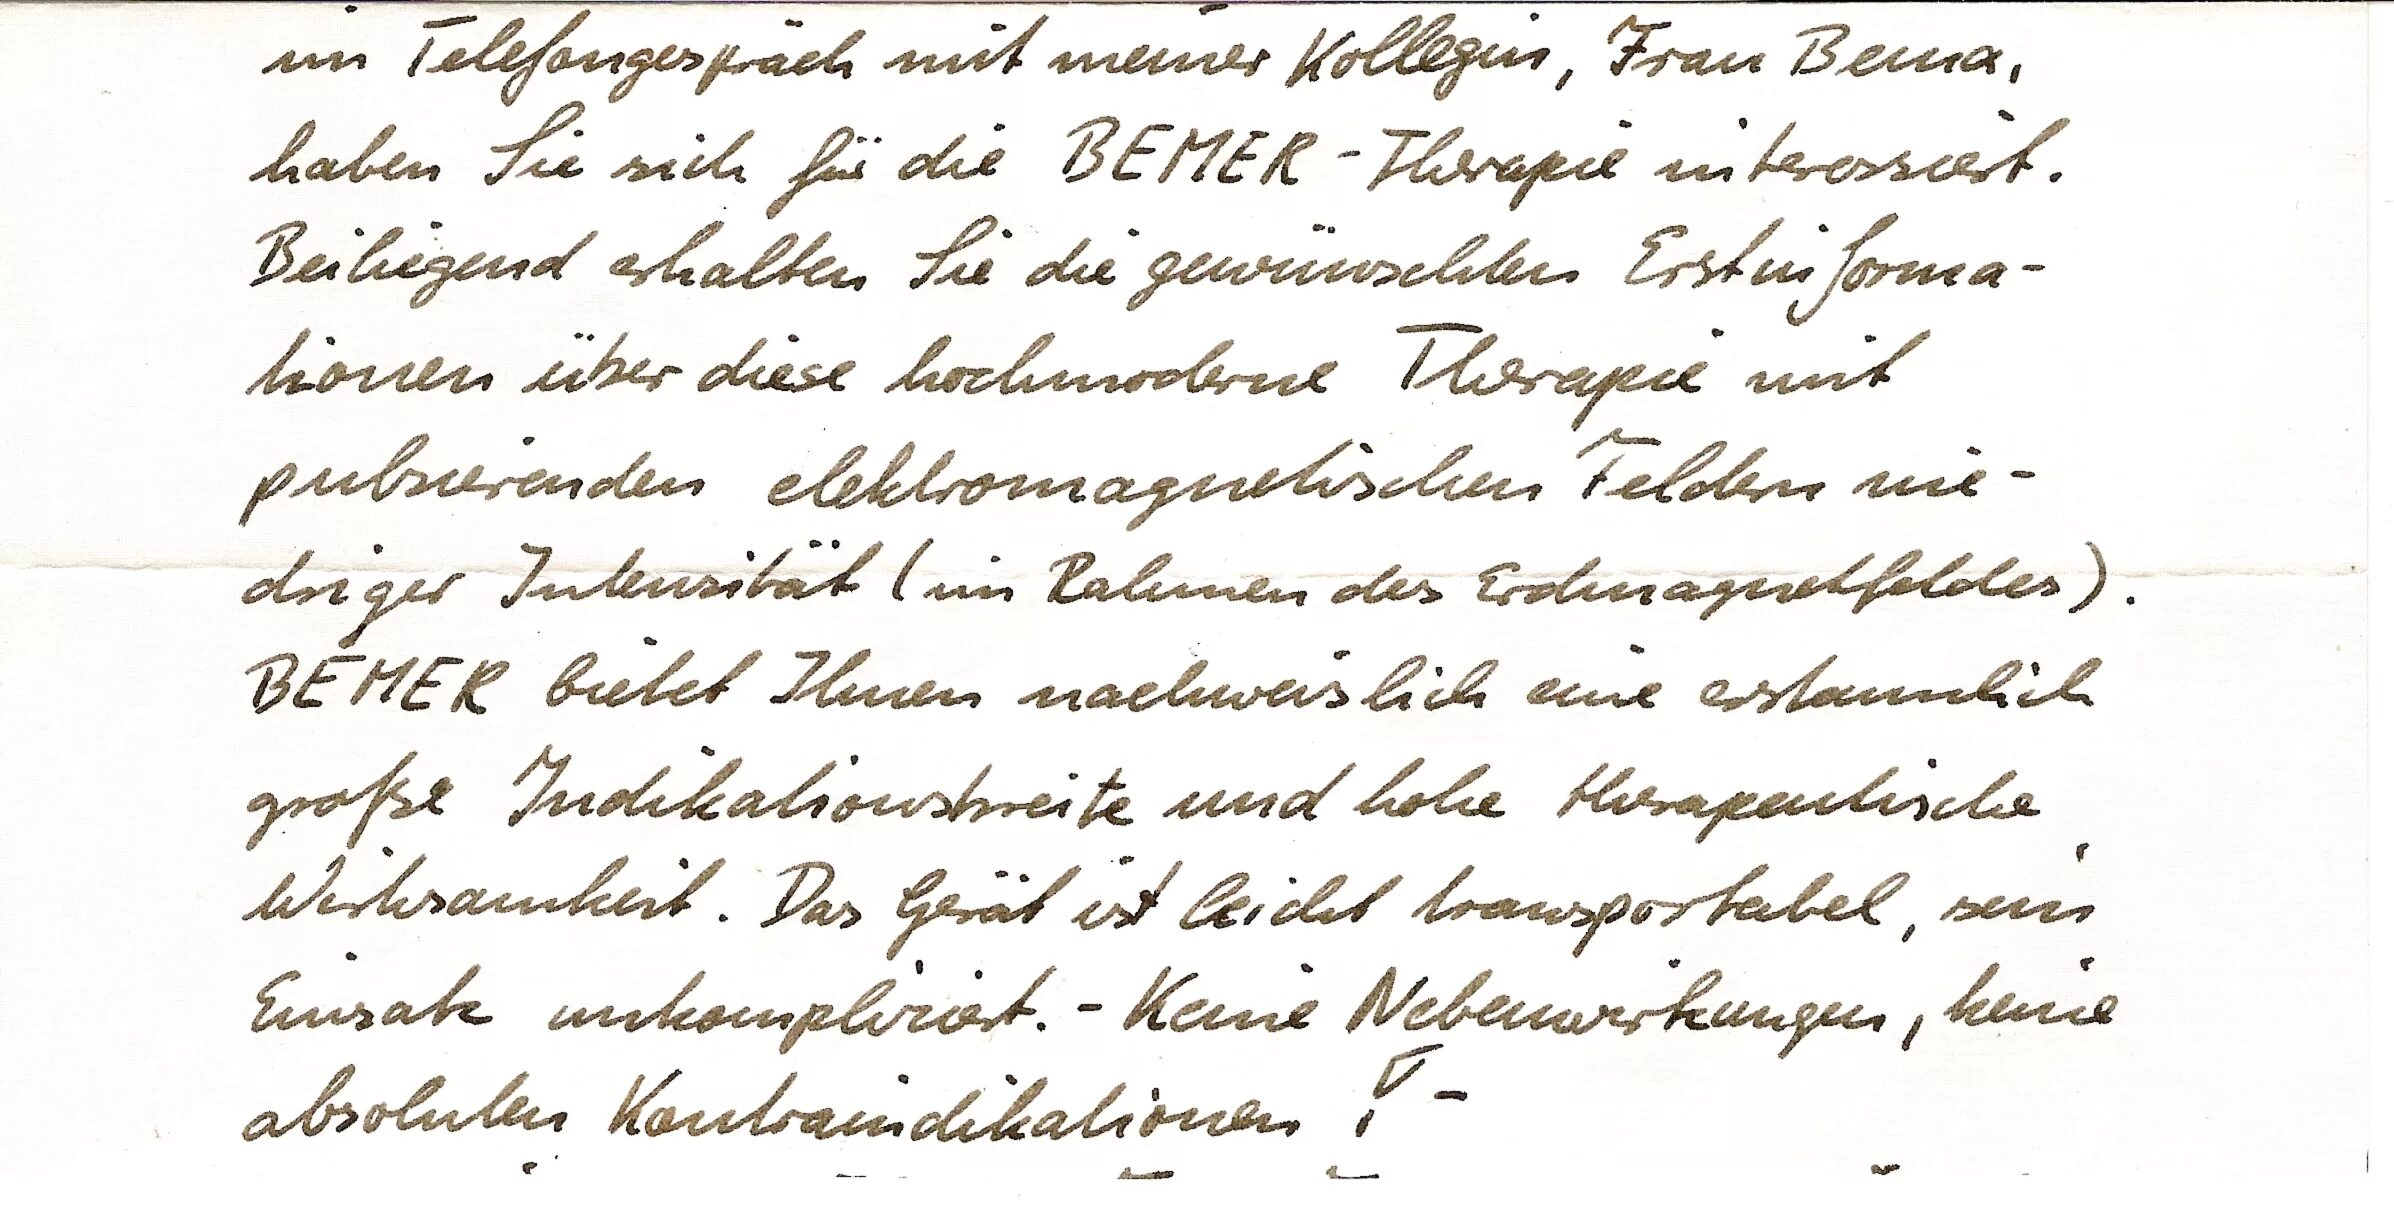 im Telefongespräch mit meiner Kollegin, Frau Bema,
haben Sie sich für die BEMER-Therapie interessiert.
Beiliegend erhalten Sie die gewünschten Erstinforma-
tionen über diese hochmoderne Therapie mit
pulsierenden elektromagnetischen Feldern nie-
driger Intensität (im Rahmen des Erdmagnetfeldes).
BEMER bietet Ihnen nachweislich eine erstaunlich
große Indikationsbreite und hohe therapeutische
Wirksamkeit. Das Gerät ist leicht transportabel, sein
Einsatz unkompliziert. - Keine Nebenwirkungen, keine
absoluten Kontraindikationen ! -